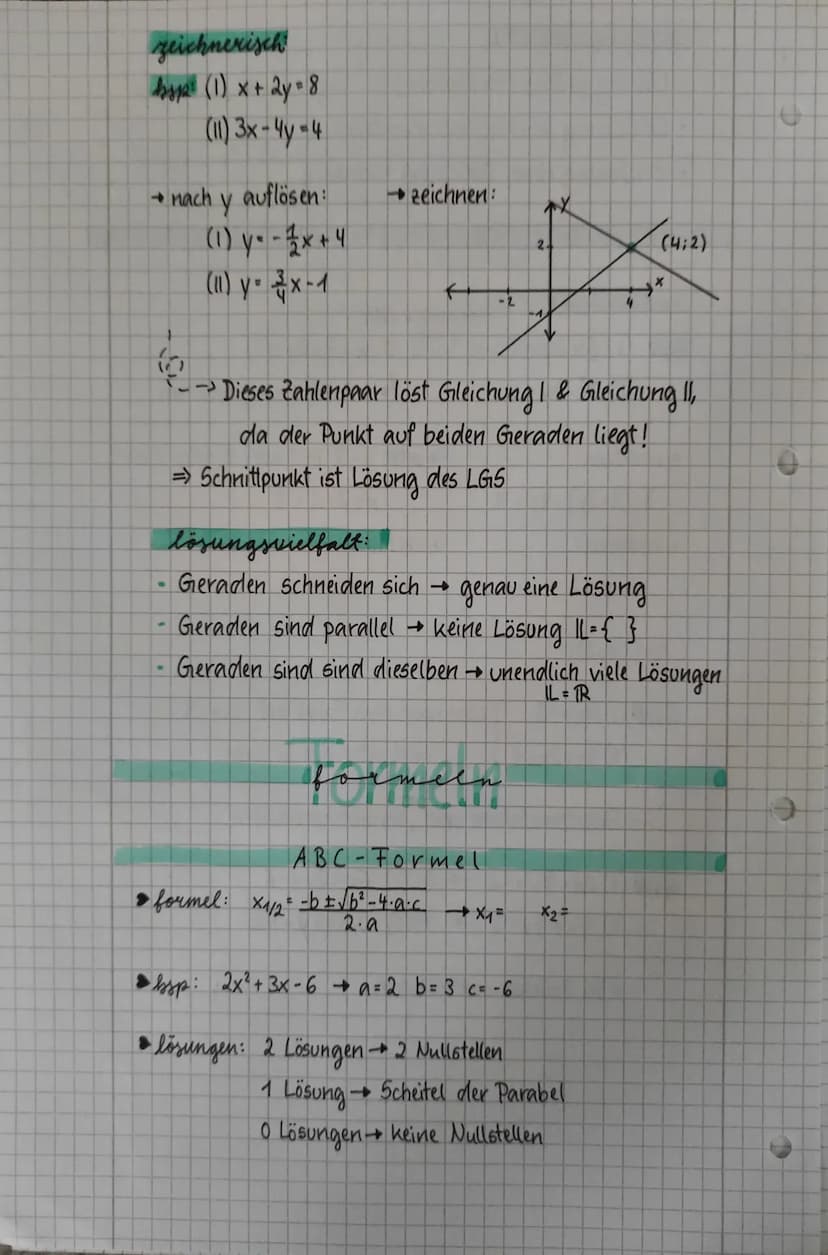 zeichnerisch:
bsp: (I) x + 2y = 8
(II) 3x - 4y = 4
→ nach y auflösen:
(I) y = -1/2x + 4
(II) y = 3/4x - 1
→ zeichnen:
y
2
(4;2)
x
-2
4
-1
→ Dieses Zahlenpaar löst Gleichung I & Gleichung II,
da der Punkt auf beiden Geraden liegt!
⇒ Schnittpunkt ist Lösung des LGS
lösungsvielfalt:
- Geraden schneiden sich → genau eine Lösung
- Geraden sind parallel → keine Lösung 𝕃 = { }
- Geraden sind sind dieselben → unendlich viele Lösungen
𝕃 = ℝ
Formeln
formeln
ABC - Formel
formel: x1/2 = (-b ± √(b² - 4·a·c)) / (2·a) → x1 = x2 =
bsp: 2x² + 3x - 6 → a = 2 b = 3 c = -6
lösungen: 2 Lösungen → 2 Nullstellen
1 Lösung → Scheitel der Parabel
0 Lösungen → keine Nullstellen